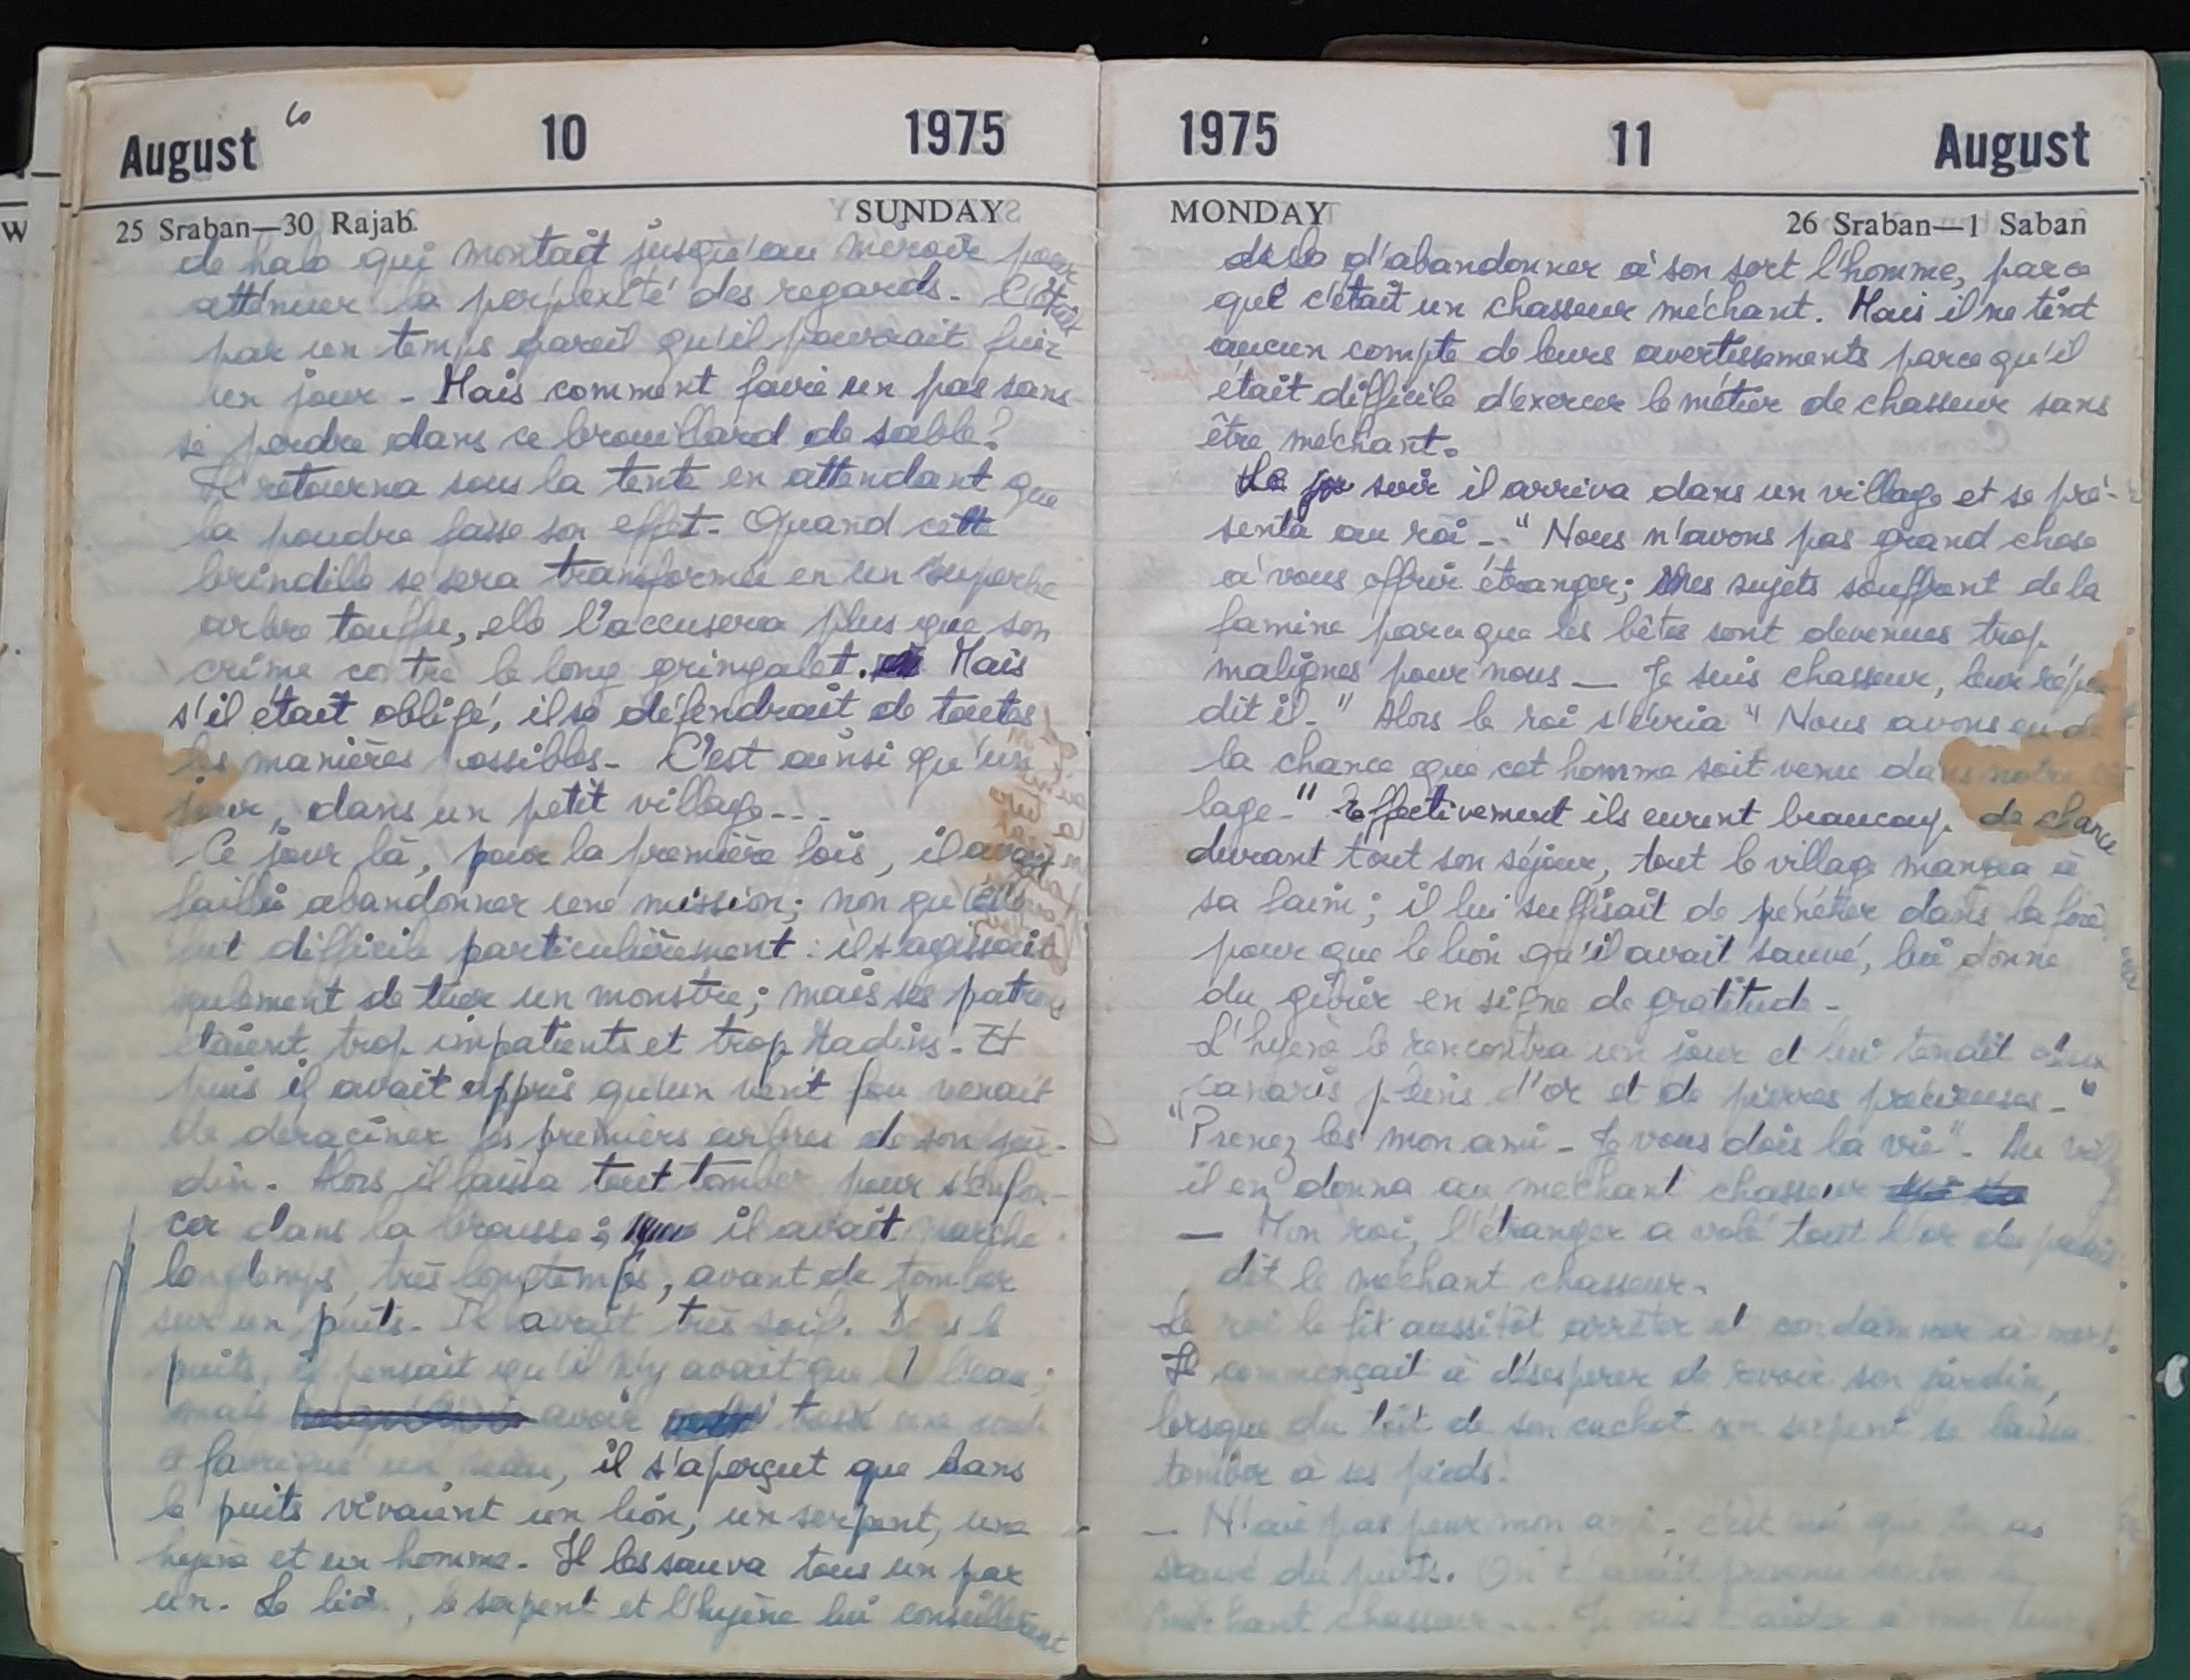 August 10 1975
25 Sraban—30 Rajab SUNDAY
de halo qui montait jusqu'au miroir pour
atténuer la perplexité des regards. C'était
par un temps pareil qu'il pourrait fuir
un jour - Mais comment faire un pas sans
se perdre dans ce brouillard de sable?
Il retourna sous la tente en attendant que
la poudre fasse son effet. Quand cette
brindille se sera transformée en un superbe
arbre touffu, elle l'accusera plus que son
crime contre le long gringalet. Mais
s'il était obligé, il se défendrait de toutes
les manières possibles. C'est ainsi qu'un
jour, dans un petit village...
Ce jour là, pour la première fois, il avait
failli abandonner une mission; non qu'elle
fut difficile particulièrement : il s'agissait
seulement de tuer un monstre; mais ses patrons
étaient trop impatients et trop radins. Et
puis il avait appris qu'un vent fou venait
de déraciner les premiers arbres de son jar-
din. Alors il laissa tout tomber pour s'enfon-
cer dans la brousse; il avait marché
longtemps, très longtemps, avant de tomber
sur un puits. Il avait très soif. Dans le
puits, il pensait qu'il n'y avait que l'eau;
mais avoir une
et fabriqué un seau, il s'aperçut que dans
le puits vivaient un lion, un serpent, une
hyène et un homme. Il les sauva tous un par
un. Le lion, le serpent et l'hyène lui conseillèrent
1975 11 August
MONDAY 26 Sraban—1 Saban
d'abandonner à son sort l'homme, parce
que c'était un chasseur méchant. Mais il ne tint
aucun compte de leurs avertissements parce qu'il
était difficile d'exercer le métier de chasseur sans
être méchant.
Le soir il arriva dans un village et se pré-
senta au roi - "Nous n'avons pas grand chose
à vous offrir étranger; mes sujets souffrent de la
famine parce que les bêtes sont devenues trop
malignes pour nous — Je suis chasseur, leur répon
dit il." Alors le roi s'écria "Nous avons eu de
la chance que cet homme soit venu dans notre vil
lage." Effectivement ils eurent beaucoup de chance
durant tout son séjour, tout le village mangea à
sa faim; il lui suffisait de pénétrer dans la forêt
pour que le lion qu'il avait sauvé, lui donne
du gibier en signe de gratitude.
L'hyène le rencontra un jour et lui tendit deux
canaris pleins d'or et de pierres précieuses.
"Prenez les mon ami - Je vous dois la vie". Au village
il en donna au méchant chasseur
— Mon roi, l'étranger a volé tout l'or du
dit le méchant chasseur.
Le roi le fit aussitôt arrêter et condamner à mort.
Il commençait à désespérer de revoir son jardin,
lorsque du toit de son cachot un serpent se laissa
tomber à ses pieds.
— N'aie pas peur mon ami, c'est moi que tu as
sauvé du puits. On t'avait prévenu contre le
méchant chasseur... Je vais t'aider à mon tour